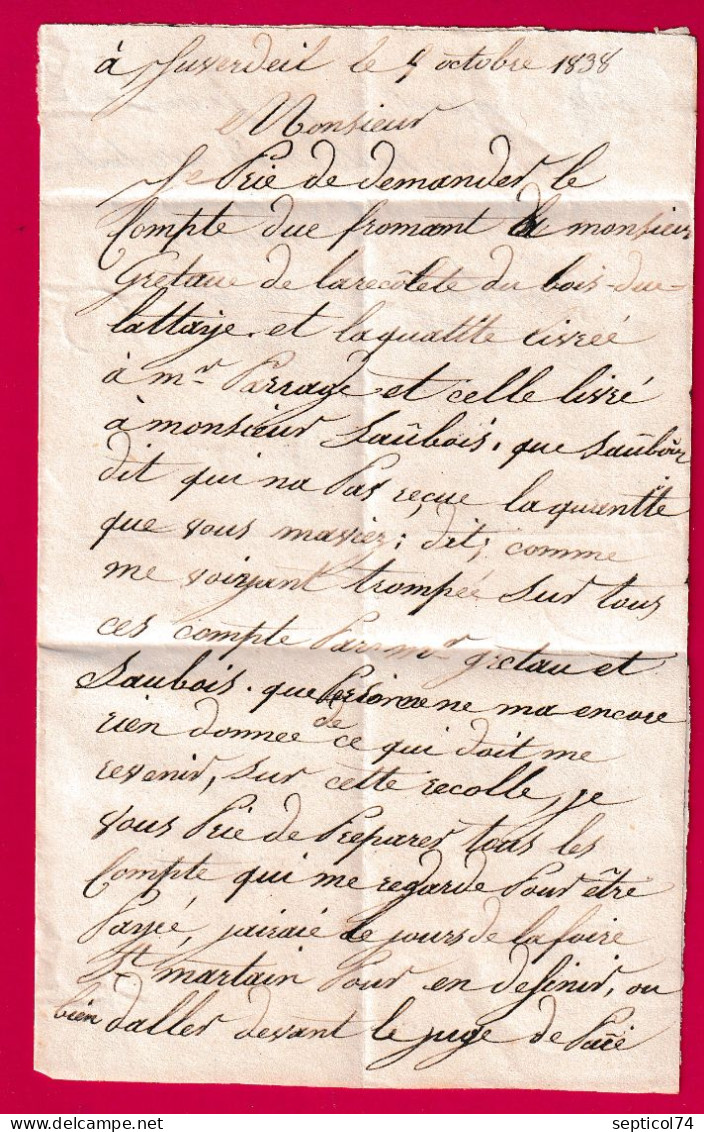 à Juverdeil le 9 octobre 1838
Monsieur
Je Prie de demander le
Compte due fromant de monsieur
Gretaue de la recôtete du bois-due-
lattaye. et la quattite livreé
à mr Parrage et celle livré
à monsieur Saûbois, que saûbois
dit qui na Pas reçue la quantite
que vous maviez; dit; comme
me voiyant trompée sur tous
ces compte Par mr gretau et
Saubois. que Personne ne ma encore
rien donnee de ce qui doit me
revenir, sur cette recolle, je
vous Prie de Preparer tous les
Compte qui me regarde Pour être
Payée, jairaié le jours de la foire
St martain Pour en definir, ou
bien daller devant le juge de Paie
septicol74